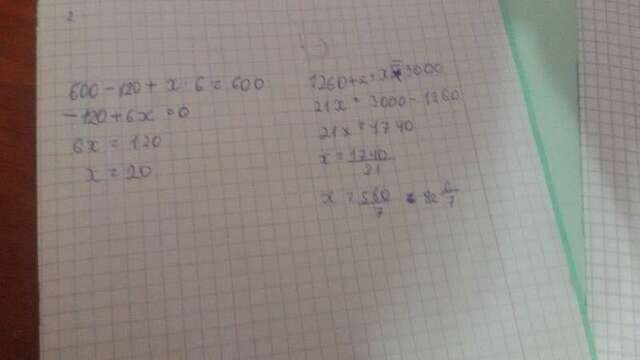 2
600 - 120 + x · 6 = 600
-120 + 6x = 0
6x = 120
x = 20
21x = 3000 - 1260
21x = 1740
x = 1740/21
x = 580/7 = 82 6/7